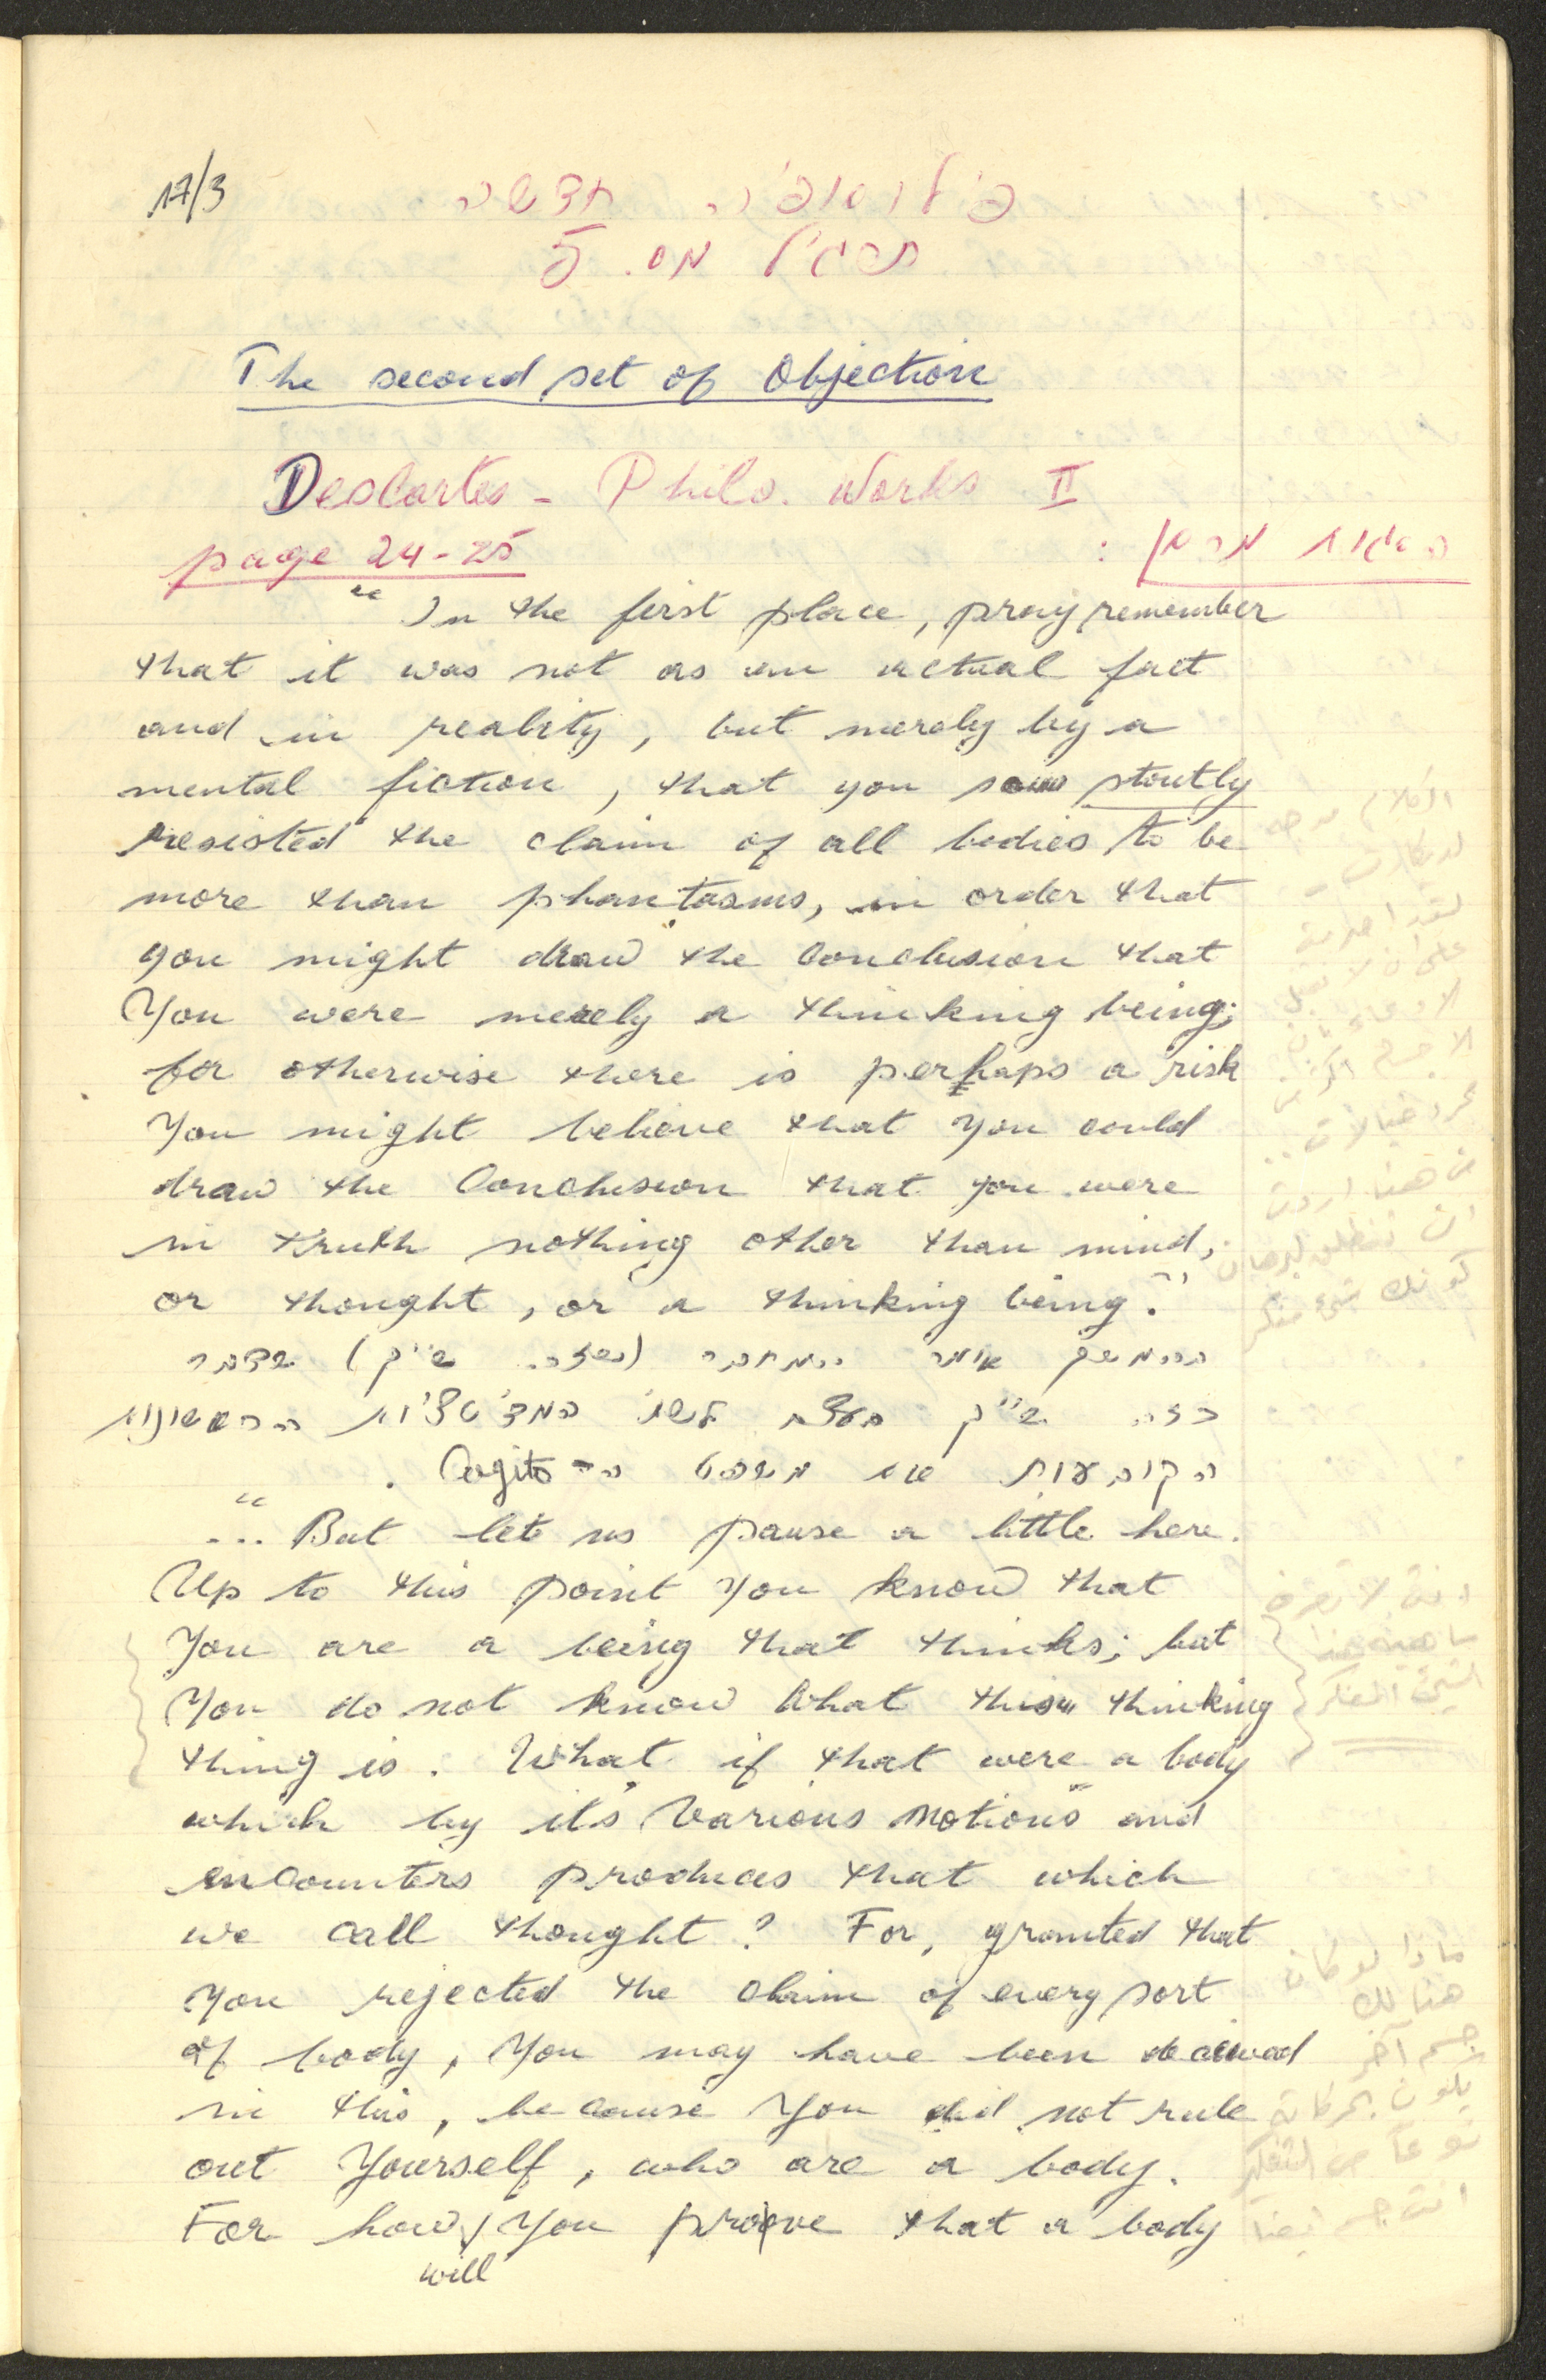 17/3
פילוסופיה חדשה
תרגיל מס. 5
The second set of Objection
Descartes - Philo. Works II
page 24-25
השגות מרסן :
"In the first place, pray remember
that it was not as an actual fact
and in reality, but merely by a
mental fiction, that you so stoutly
resisted the claim of all bodies to be
more than phantasms, in order that
you might draw the Conclusion that
You were merely a thinking being;
for otherwise there is perhaps a risk
You might believe that you could
draw the Conclusion that you were
in truth nothing other than mind,
or thought, or a thinking being."
הקובעות את משפט ה- Cogito.
"... But let us pause a little here.
Up to this point you know that
You are a being that thinks; but
You do not know what this thinking
thing is. What if that were a body
which by its various motions and
encounters produces that which
we call thought? For, granted that
you rejected the claim of every sort
of body, you may have been deceived
in this, because you did not rule
out Yourself, who are a body.
For how will you prove that a body
الكلام موجه
لديكارت
على ان لا تقبل
مجرد خيالات..
من هنا اردت
ان تنطلق لبرهان
كونك شيء مفكر
انت لا تعرف
ما هية هذا
الشيء المفكر
ماذا لو كان
هنالك
جسم آخر
يكون بحركاته
نوعاً من التفكير
انت جسم ايضا